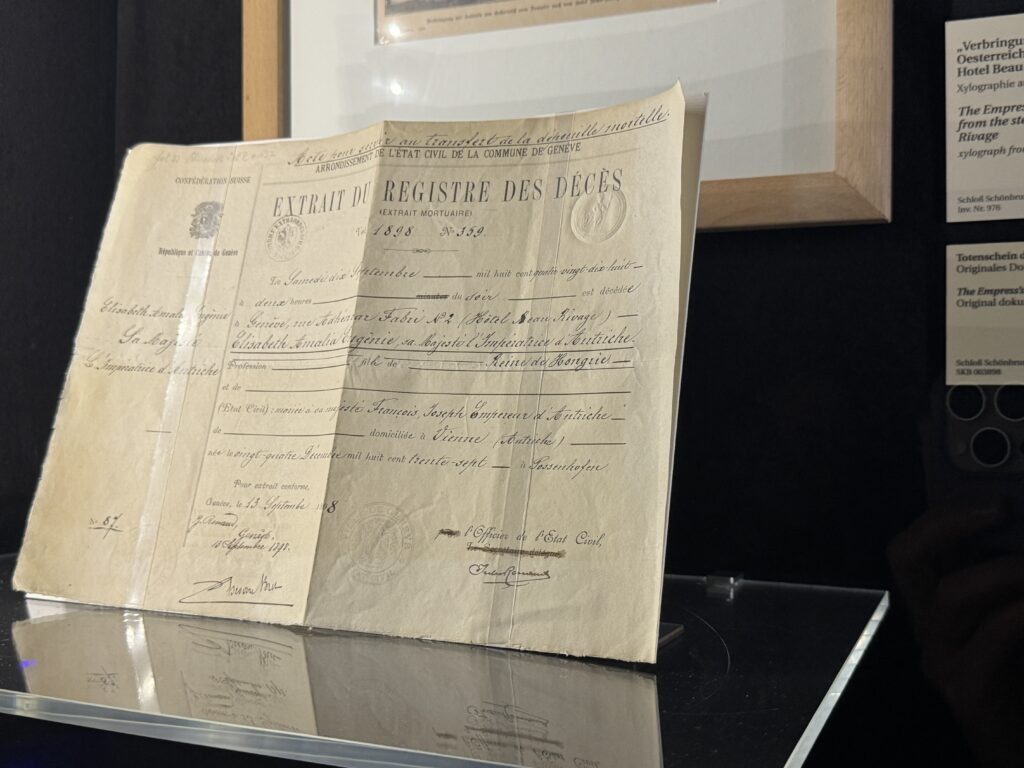 Acte pour servir au transfert de la dépouille mortelle.
ARRONDISSEMENT DE L'ÉTAT CIVIL DE LA COMMUNE DE GENÈVE
CONFÉDÉRATION SUISSE
République et Canton de Genève
Elisabeth Amalie Eugénie
Sa Majesté
L'Impératrice d'Autriche
N° 87
EXTRAIT DU REGISTRE DES DÉCÈS
(EXTRAIT MORTUAIRE)
1898 N° 359.
Le Samedi dix Septembre mil huit cent quatre vingt-dix-huit
à deux heures minutes du soir est décédée
à Genève, rue Adhémar Fabri N° 2 (Hôtel Beau Rivage)
Elisabeth Amalia Eugénie, sa Majesté l'Impératrice d'Autriche.
Profession fille de Reine de Hongrie
et de
(État Civil) : mariée à sa majesté François Joseph Empereur d'Autriche
de domiciliée à Vienne (Autriche)
née le vingt-quatre Décembre mil huit cent trente-sept à Possenhofen
Pour extrait conforme,
Genève, le 13 Septembre 1898
Genève,
13 Septembre 1898.
l'Officier de l'Etat Civil,
„Verbringu
Oesterreich
Hotel Beau
Xylographie a
The Empres
from the ste
Rivage
xylograph fro
Schloß Schönbru
Inv. Nr. 976
Totenschein d
Originales Do
The Empress's
Original doku
Schloß Schönbru
SKB 003898